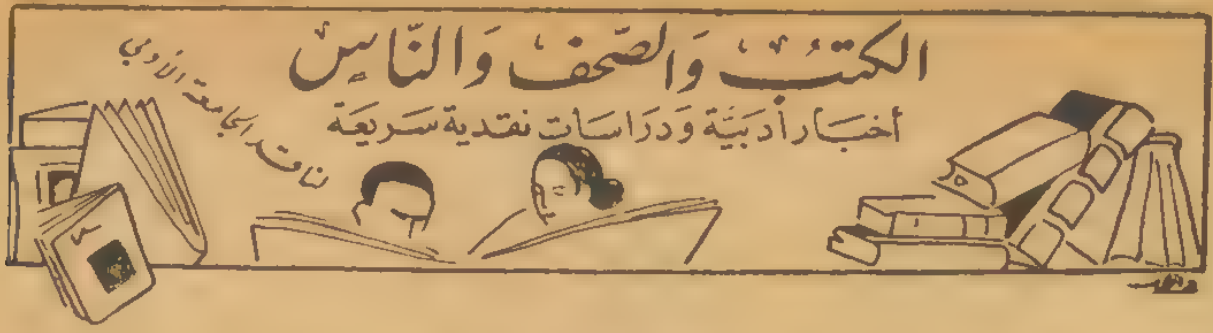 الكتبُ وَالصّحفُ وَالنّاسُ
أخبَار أدَبيَّة وَدرَاسَات نقدية سَريعَة
لناقد الجامعة الأدبي